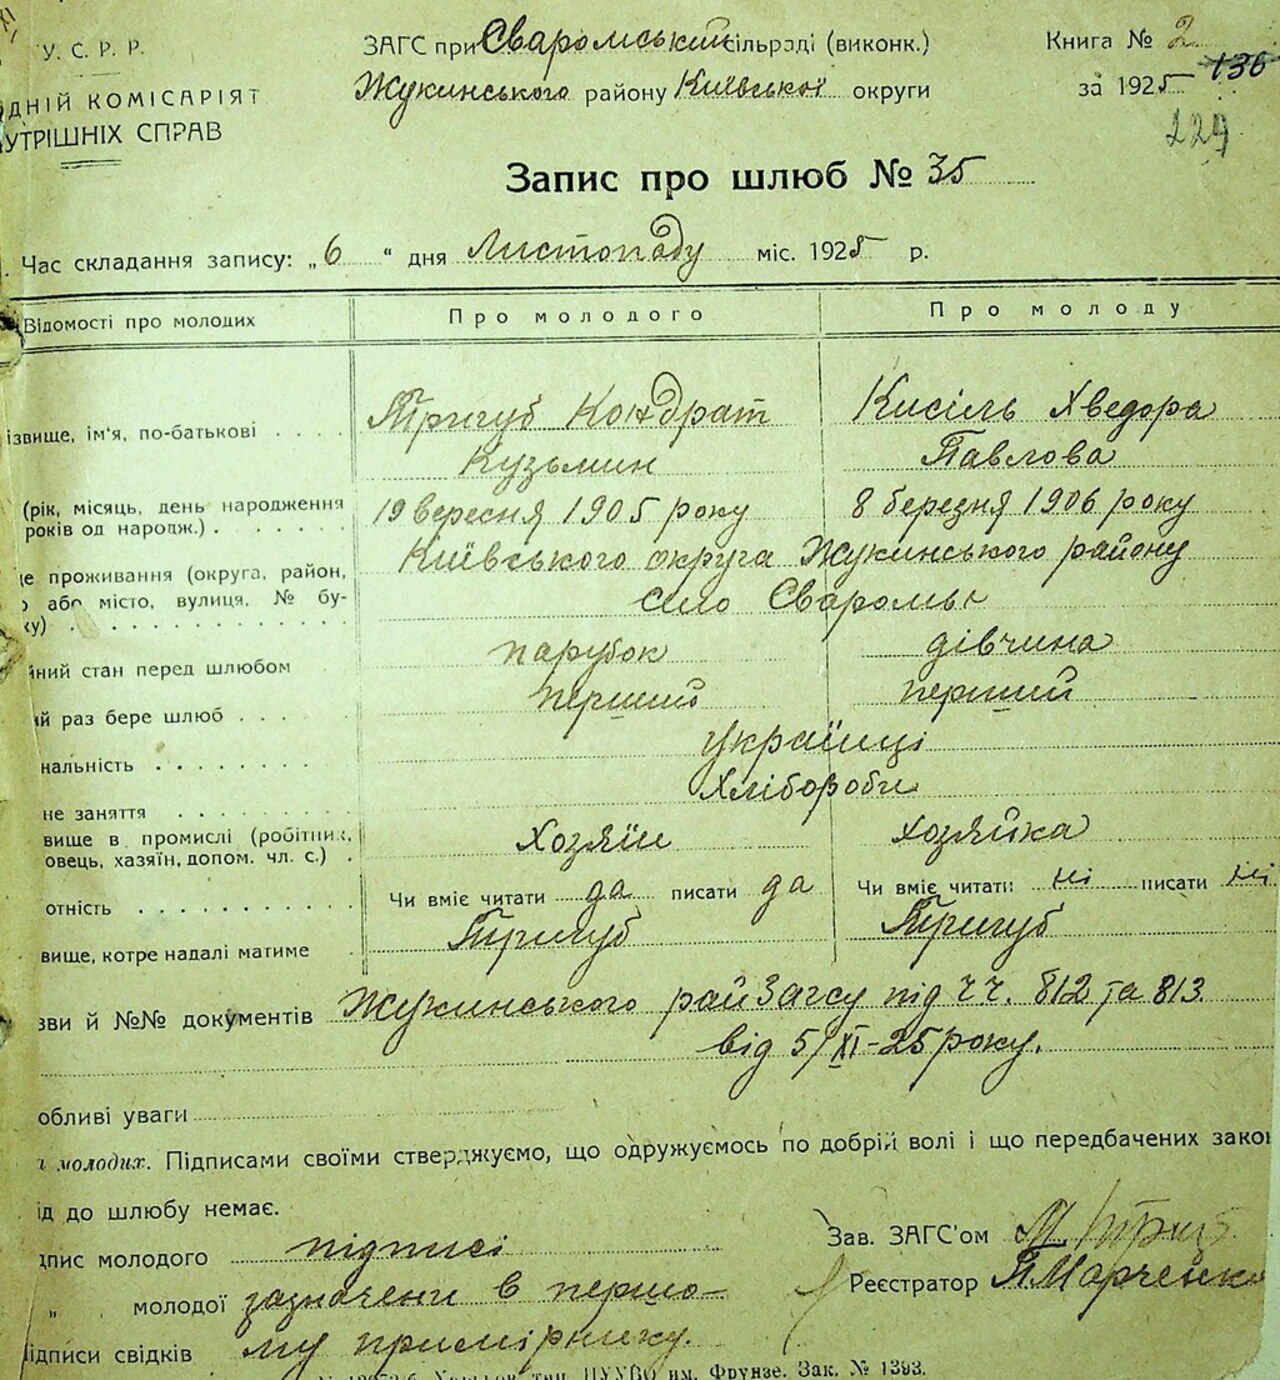 У. С. Р. Р.
ДНІЙ КОМІСАРІЯТ
УТРІШНІХ СПРАВ
ЗАГС при Сваромський сільраді (виконк.)
Жукинського району Київської округи
Книга № 2
за 1925 136
229
Запис про шлюб № 35
Час складання запису: „6“ дня Листопаду міс. 1925 р.
Відомості про молодих Про молодого Про молоду
ізвище, ім'я, по-батькові . . . . Тригуб Кондрат Кисіль Хведора
Кузьмин Павлова
(рік, місяць, день народження 19 вересня 1905 року 8 березня 1906 року
років од народж.) . . . . . .
це проживання (округа, район, Київського округа Жукинського району
або місто, вулиця, № бу- село Сваромьє
ку) . . . . . . . . . . . . .
йний стан перед шлюбом парубок дівчина
ий раз бере шлюб . . . . перший перший
нальність . . . . . . . . українці
не заняття . . . . . . . Хлібороби
вище в промислі (робітник, Хозяїн хозяйка
овець, хазяїн, допом. чл. с.) .
отність . . . . . . . . . . . Чи вміє читати да писати да Чи вміє читати ні писати ні
вище, котре надалі матиме Тригуб Тригуб
зви й №№ документів Жукинського райЗагсу під чч. 812 та 813
від 5/XI-25 року.
обливі уваги
молодих. Підписами своїми стверджуємо, що одружуємось по добрій волі і що передбачених зако
ід до шлюбу немає.
дпис молодого підписі
„ молодої зазначени в першо-
Підписи свідків му примірнику.
Зав. ЗАГС'ом
Реєстратор П Марченко
тип. ПУУВО им. Фрунзе. Зак. № 1393.